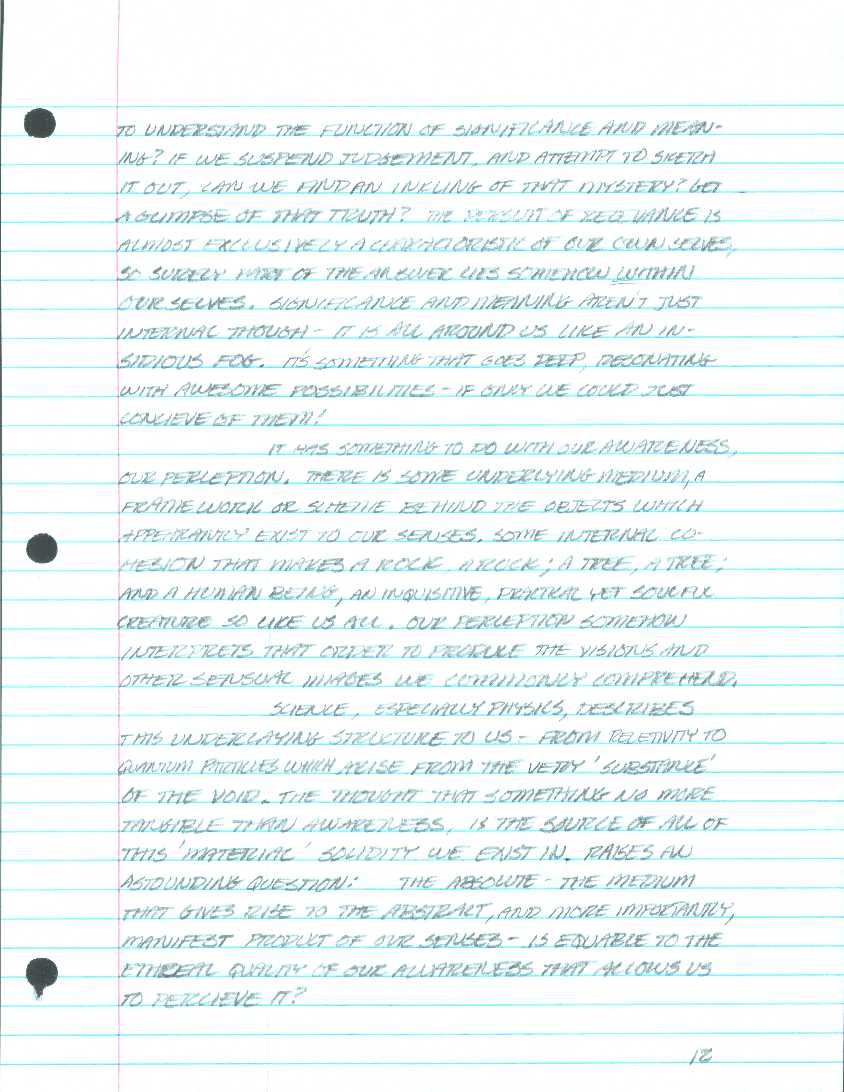 TO UNDERSTAND THE FUNCTION OF SIGNIFICANCE AND MEAN-
ING? IF WE SUSPEND JUDGEMENT, AND ATTEMPT TO SKETCH
IT OUT, CAN WE FIND AN INKLING OF THAT MYSTERY? GET
A GLIMPSE OF THAT TRUTH? THE PERSUIT OF RELEVANCE IS
ALMOST EXCLUSIVELY A CHARACTORISTIC OF OUR OWN SELVES,
SO SURELY PART OF THE ANSWER LIES SOMEHOW WITHIN
OURSELVES. SIGNIFICANCE AND MEANING AREN'T JUST
INTERNAL THOUGH - IT IS ALL AROUND US LIKE AN IN-
SIDIOUS FOG. IT'S SOMETHING THAT GOES DEEP, RESONATING
WITH AWESOME POSSIBILITIES - IF ONLY WE COULD JUST
CONCIEVE OF THEM!
IT HAS SOMETHING TO DO WITH OUR AWARENESS,
OUR PERCEPTION. THERE IS SOME UNDERLYING MEDIUM, A
FRAMEWORK OR SCHEME BEHIND THE OBJECTS WHICH
APPEARANTLY EXIST TO OUR SENSES. SOME INTERNAL CO-
HESION THAT MAKES A ROCK, A ROCK; A TREE, A TREE;
AND A HUMAN BEING, AN INQUISITIVE, PRACTICAL YET SOULFUL
CREATURE SO LIKE US ALL. OUR PERCEPTION SOMEHOW
INTERPRETS THAT ORDER TO PRODUCE THE VISIONS AND
OTHER SENSUAL IMAGES WE COMMONLY COMPREHEND.
SCIENCE, ESPECIALLY PHYSICS, DESCRIBES
THIS UNDERLAYING STRUCTURE TO US - FROM RELETIVITY TO
QUANTUM PARTICLES WHICH ARISE FROM THE VERY 'SUBSTANCE'
OF THE VOID. THE THOUGHT THAT SOMETHING NO MORE
TANGIBLE THAN AWARENESS, IS THE SOURCE OF ALL OF
THIS 'MATERIAL' SOLIDITY WE EXIST IN. RAISES AN
ASTOUNDING QUESTION: THE ABSOLUTE - THE MEDIUM
THAT GIVES RISE TO THE ABSTRACT, AND MORE IMPORTANTLY,
MANIFEST PRODUCT OF OUR SENSES - IS EQUABLE TO THE
ETHEREAL QUALITY OF OUR AWARENESS THAT ALLOWS US
TO PERCIEVE IT?
12